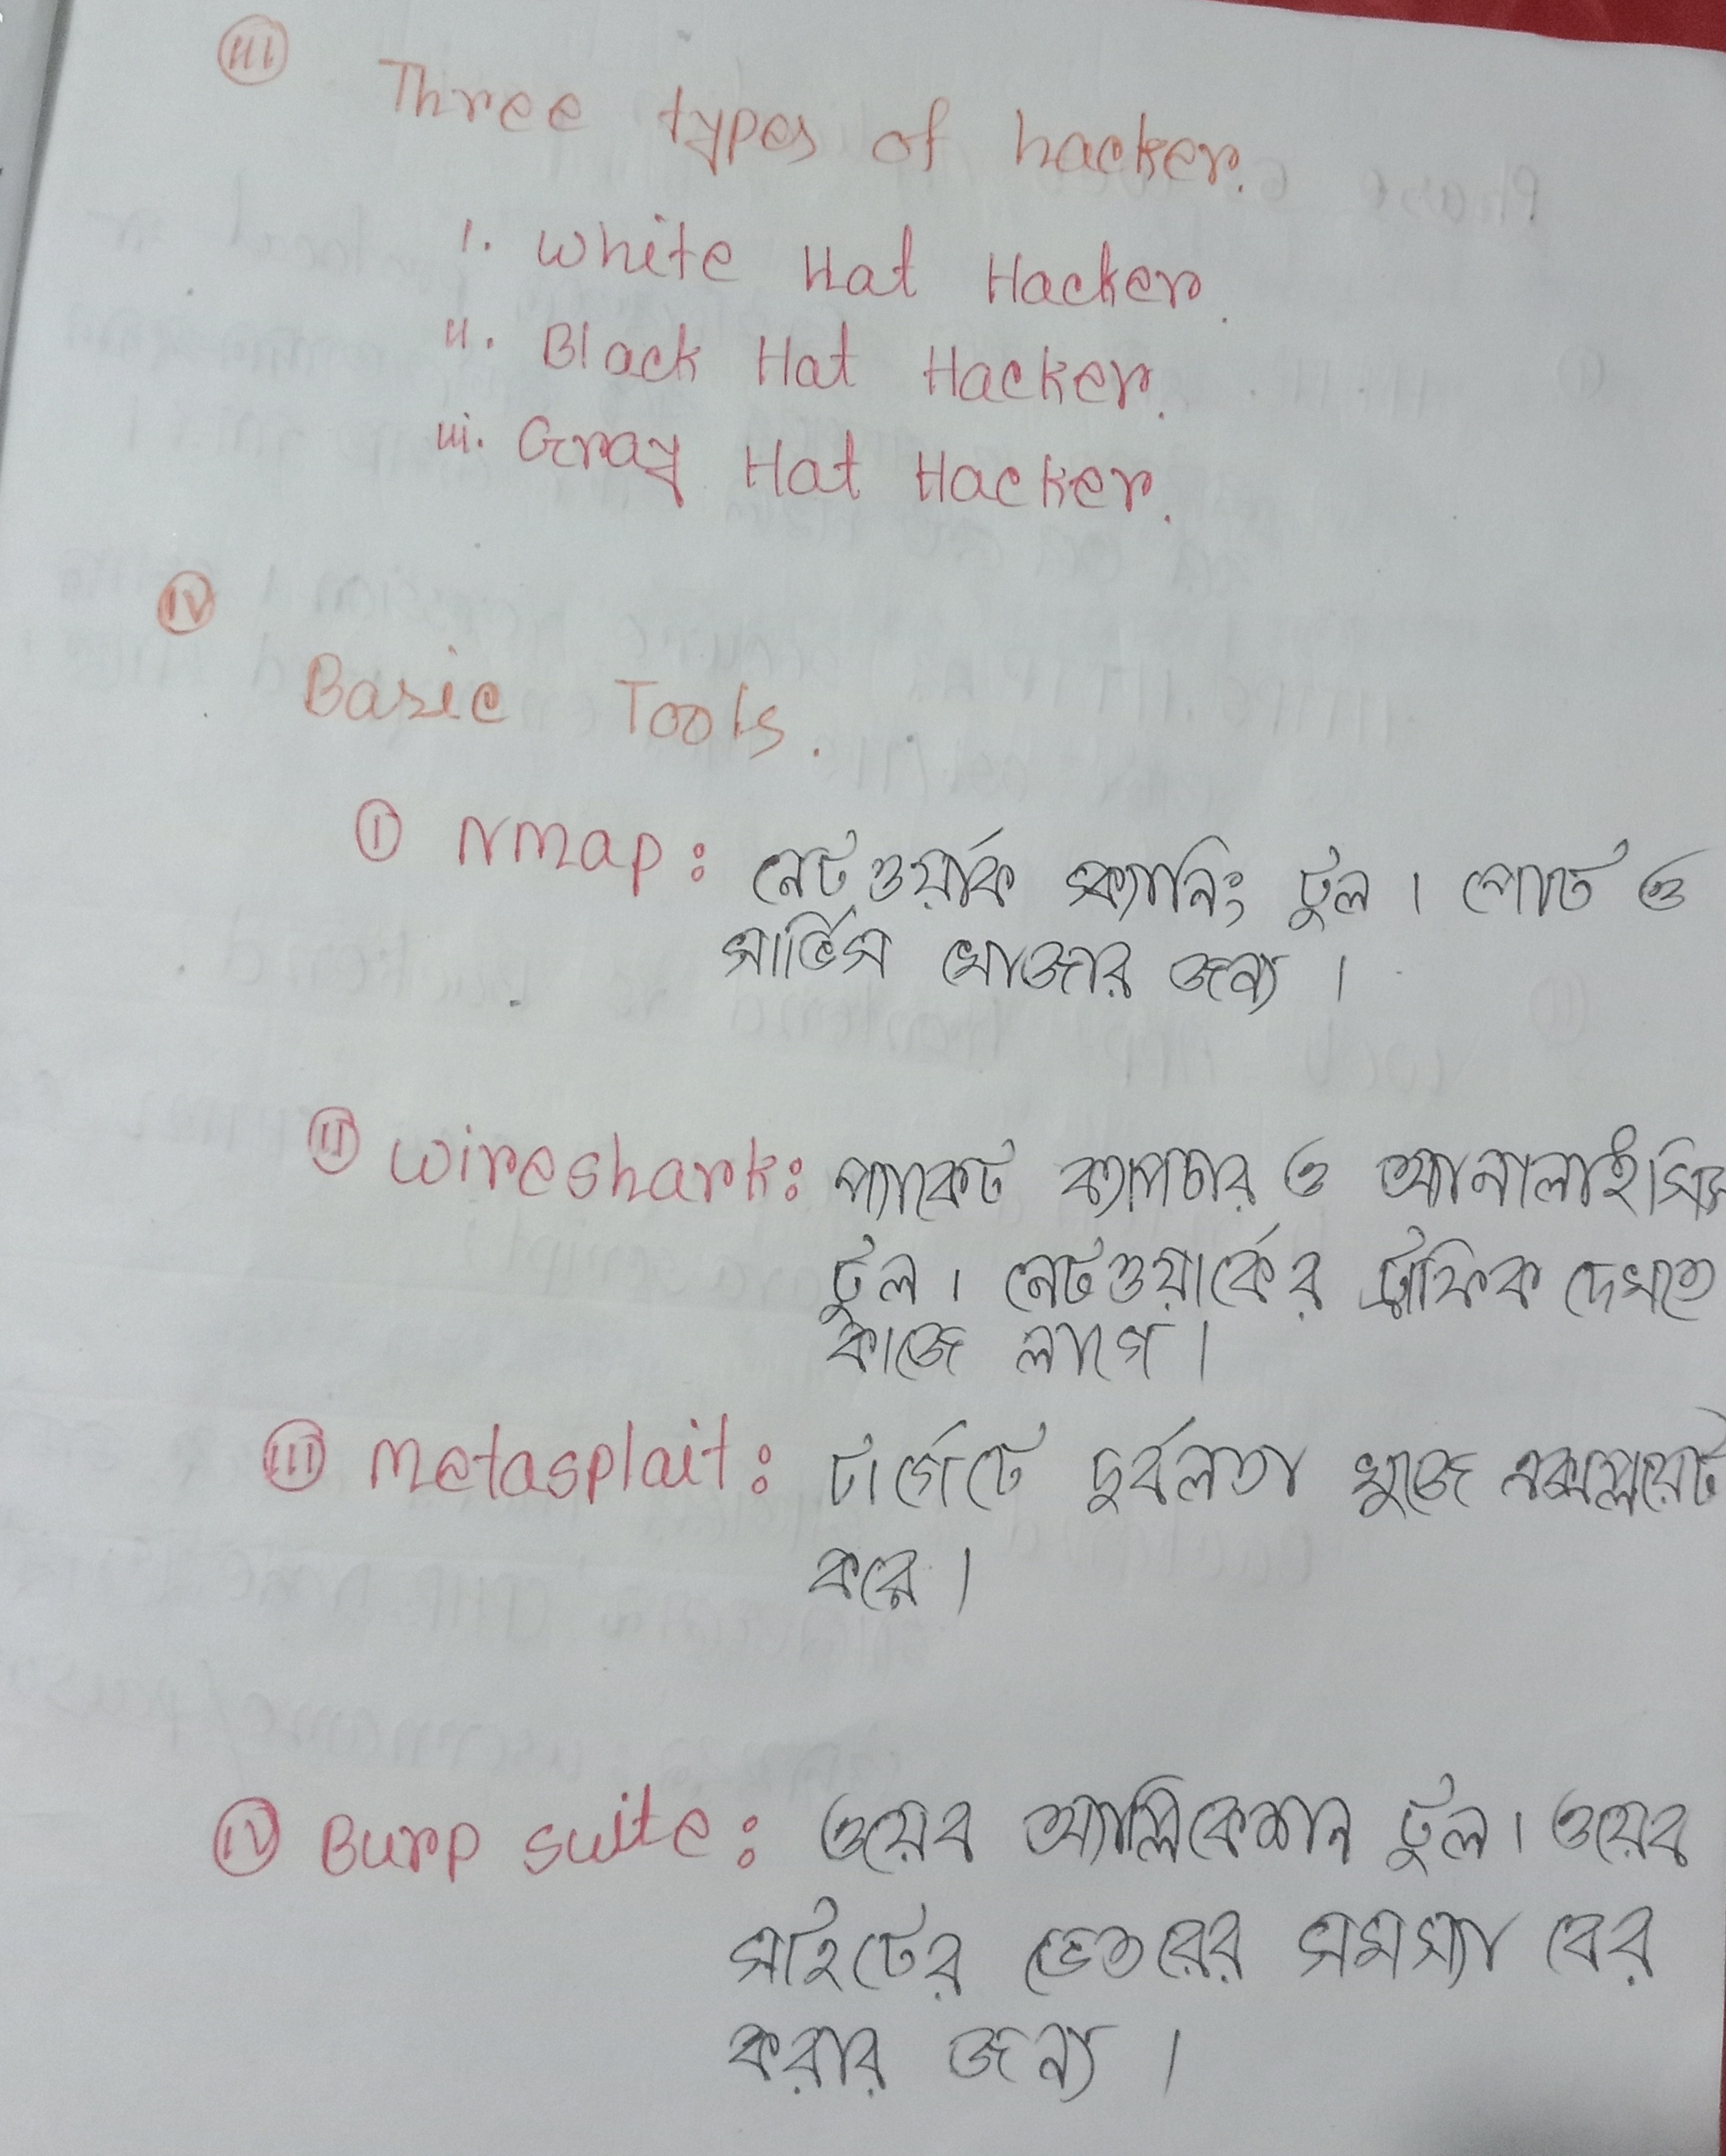 III
Three types of hacker.
i. White Hat Hacker.
ii. Black Hat Hacker.
iii. Gray Hat Hacker.
IV
Basic Tools.
I Nmap: নেটওয়ার্ক স্ক্যানিং টুল। পোর্ট ও
সার্ভিস খোজার জন্য।
II Wireshark: প্যাকেট ক্যাপচার ও অ্যানালাইসিস
টুল। নেটওয়ার্কের ট্রাফিক দেখতে
কাজে লাগে।
III Metasplait: টার্গেটে দুর্বলতা খুজে এক্সপ্লয়েট
করে।
IV Burp suite: ওয়েব অ্যাপ্লিকেশান টুল। ওয়েব
সাইটের ভেতরের সমস্যা বের
করার জন্য।